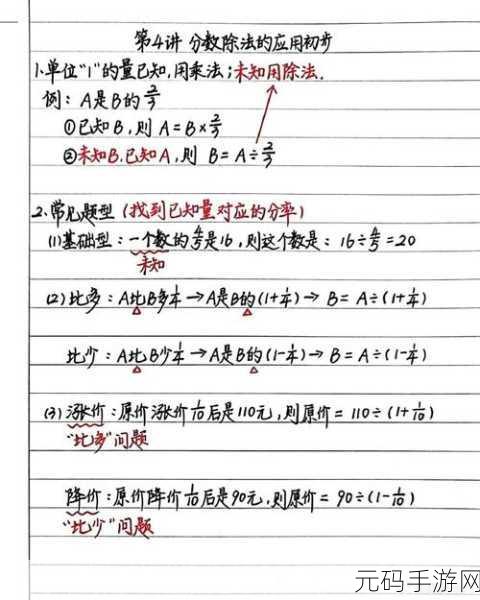 第4讲 分数除法的应用初步
1.单位"1"的量已知,用乘法;未知用除法.
例: A是B的2/3
①已知B,则 A=B×2/3
②未知B.已知A,则 B=A÷2/3
2.常见题型(找到已知量对应的分率)
(1)基础型:一个数的4/5是16,则这个数是:16÷4/5=20
未知
(2)比多:A比B多1/4→A是B的(1+1/4)→B=A÷(1+1/4)
比少:A比B少1/4→A是B的(1-1/4)→B=A÷(1-1/4)
(3)涨价:原价涨价1/10后是110元,则原价=110÷(1+1/10)
"比多"问题
降价:原价降价1/10后是90元,则原价=90÷(1-1/10)
"比少"问题
元码手游网